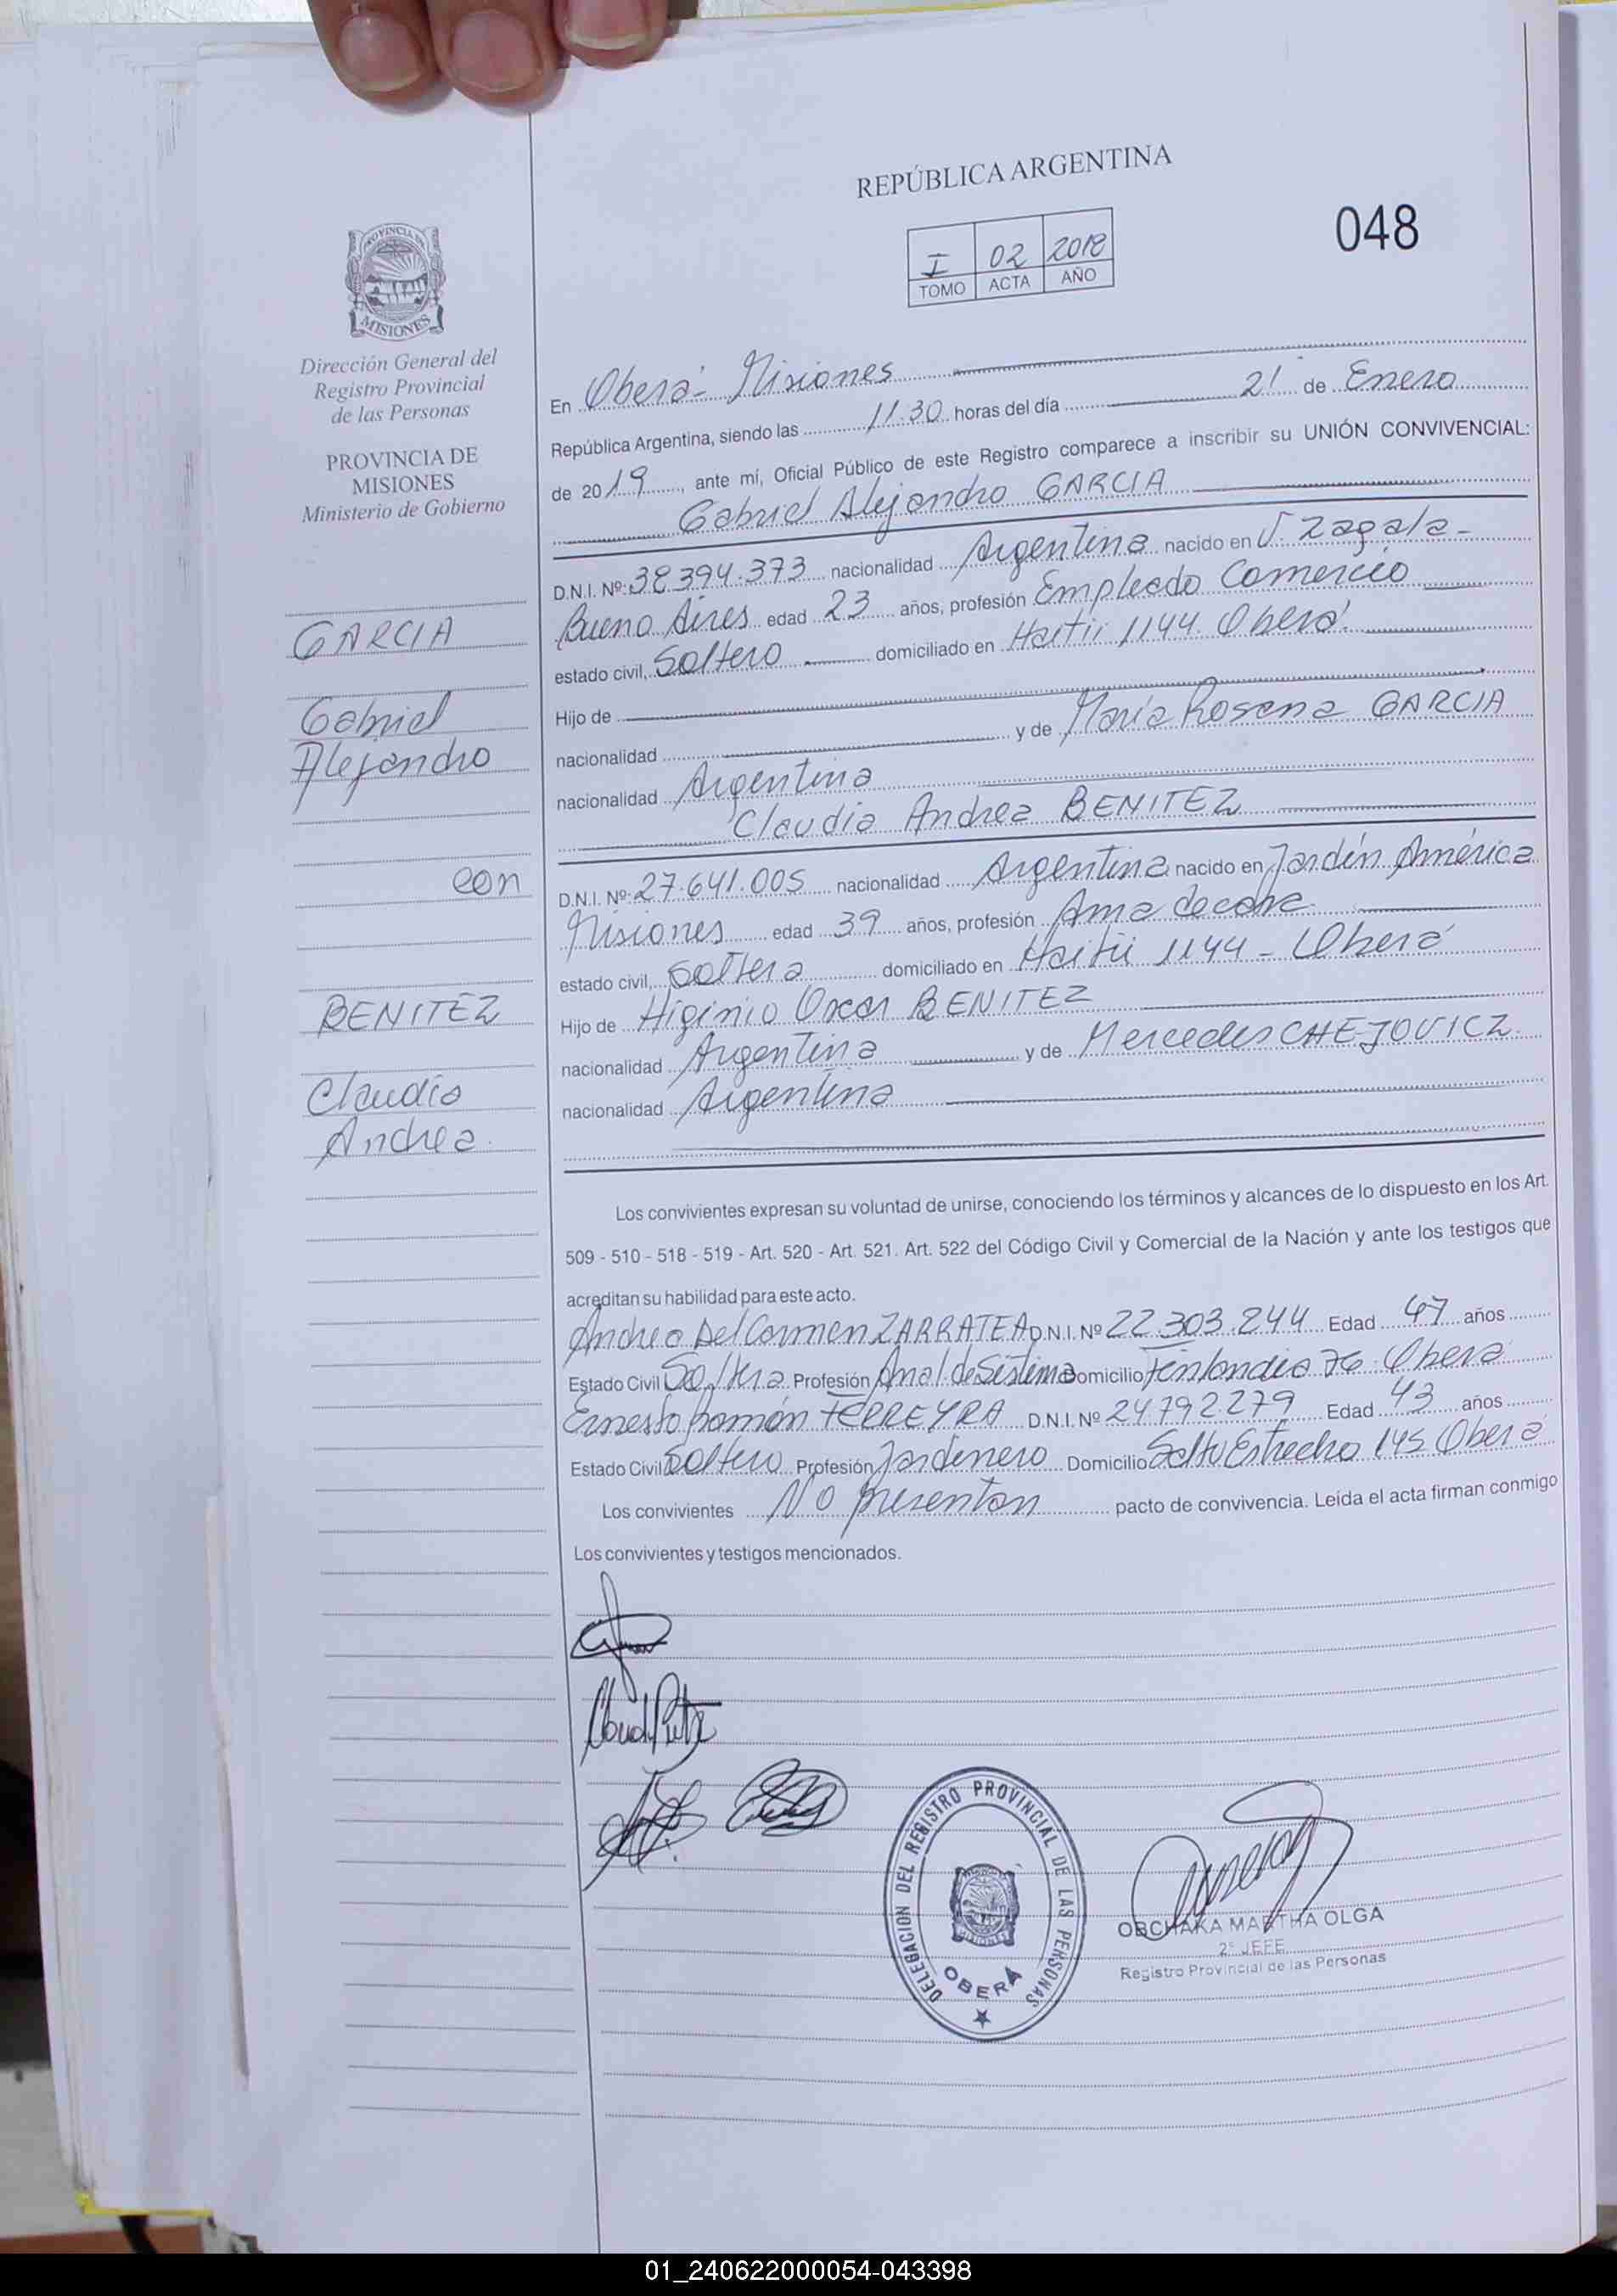 REPÚBLICA ARGENTINA
048
I 02 2018
TOMO ACTA AÑO
PROVINCIA DE
MISIONES
Dirección General del
Registro Provincial
de las Personas
PROVINCIA DE
MISIONES
Ministerio de Gobierno
GARCIA
Gabriel
Alejandro
con
BENITEZ
Claudia
Andrea.
En Oberá - Misiones
República Argentina, siendo las 11.30 horas del día 21 de Enero
de 2019, ante mí, Oficial Público de este Registro comparece a inscribir su UNIÓN CONVIVENCIAL:
Gabriel Alejandro GARCIA
D.N.I. Nº: 38.394.373 nacionalidad Argentina nacido en J. Zagala -
Bueno Aires edad 23 años, profesión Empleado Comercio
estado civil, Soltero domiciliado en Haitii 1144. Oberá.
Hijo de
nacionalidad y de María Rosana GARCIA
nacionalidad Argentina
Claudia Andrea BENITEZ
D.N.I. Nº: 27.641.005 nacionalidad Argentina nacido en Jardín América
Misiones edad 39 años, profesión Ama de casa
estado civil, Soltera domiciliado en Haitii 1144 - Oberá
Hijo de Higinio Oscar BENITEZ
nacionalidad Argentina y de Mercedes CHEJOVICZ.
nacionalidad Argentina
Los convivientes expresan su voluntad de unirse, conociendo los términos y alcances de lo dispuesto en los Art.
509 - 510 - 518 - 519 - Art. 520 - Art. 521. Art. 522 del Código Civil y Comercial de la Nación y ante los testigos que
acreditan su habilidad para este acto.
Andrea Del Carmen ZARRATEA D.N.I. Nº 22.303.244 Edad 47 años
Estado Civil Soltera Profesión Anal. de Sistema Domicilio Finlandia 76. Oberá
Ernesto Ramón FERREYRA D.N.I. Nº 24792279 Edad 43 años
Estado Civil Soltero Profesión Jardinero Domicilio Salto Estrecho 145 Oberá
Los convivientes No presentan pacto de convivencia. Leída el acta firman conmigo
Los convivientes y testigos mencionados.
DELEGACION DEL REGISTRO PROVINCIAL DE LAS PERSONAS
MISIONES
OBERÁ
OBCHAKA MARTHA OLGA
2° JEFE
Registro Provincial de las Personas
01_240622000054-043398